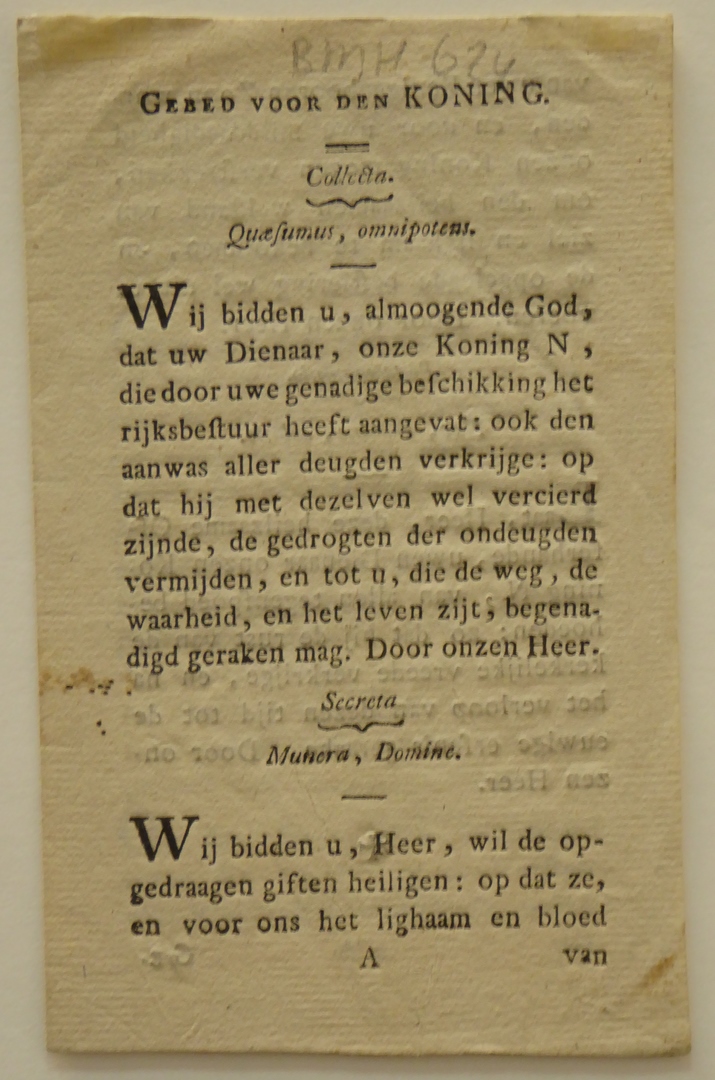 BMH 624
GEBED VOOR DEN KONING.
Collecta.
Quæſumus, omnipotens.
Wij bidden u, almoogende God,
dat uw Dienaar, onze Koning N,
die door uwe genadige beſchikking het
rijksbeſtuur heeft aangevat: ook den
aanwas aller deugden verkrijge: op
dat hij met dezelven wel vercierd
zijnde, de gedrogten der ondeugden
vermijden, en tot u, die de weg, de
waarheid, en het leven zijt, begena-
digd geraken mag. Door onzen Heer.
Secreta
Munera, Domine.
Wij bidden u, Heer, wil de op-
gedraagen giften heiligen: op dat ze,
en voor ons het lighaam en bloed
A van